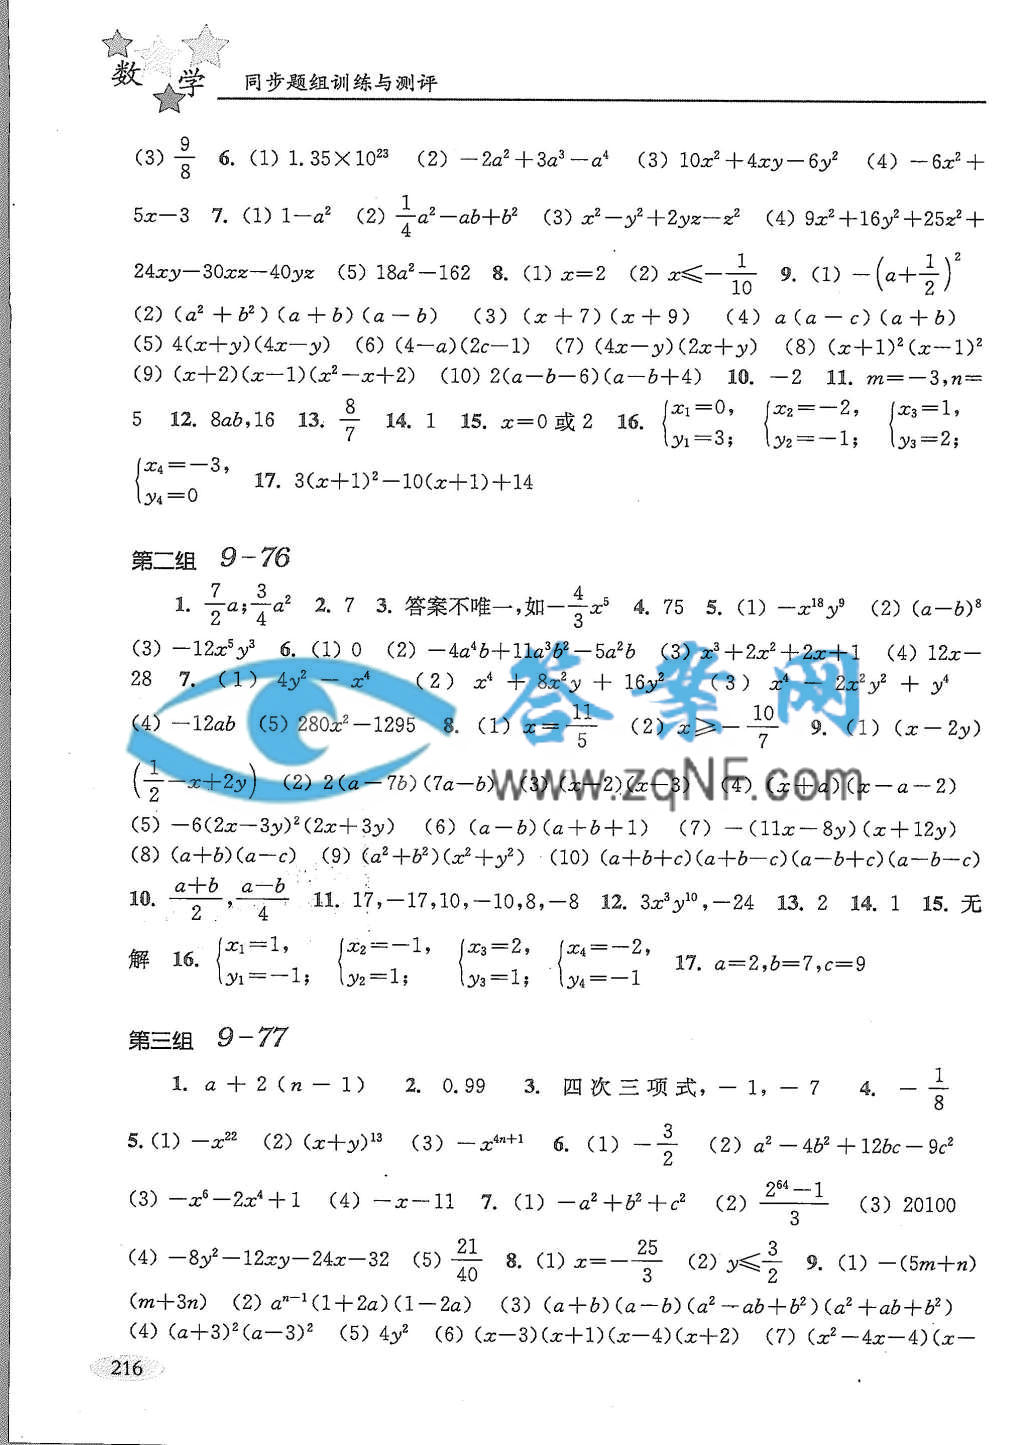 数学
同步题组训练与测评
(3) 9/8  6. (1) 1.35×10²³  (2) −2a²+3a³−a⁴  (3) 10x²+4xy−6y²  (4) −6x²+
5x−3  7. (1) 1−a²  (2) 1/4a²−ab+b²  (3) x²−y²+2yz−z²  (4) 9x²+16y²+25z²+
24xy−30xz−40yz  (5) 18a²−162  8. (1) x=2  (2) x⩽−1/10  9. (1) −(a+1/2)²
(2) (a²+b²)(a+b)(a−b)  (3) (x+7)(x+9)  (4) a(a−c)(a+b)
(5) 4(x+y)(4x−y)  (6) (4−a)(2c−1)  (7) (4x−y)(2x+y)  (8) (x+1)²(x−1)²
(9) (x+2)(x−1)(x²−x+2)  (10) 2(a−b−6)(a−b+4)  10. −2  11. m=−3,n=
5  12. 8ab,16  13. 8/7  14. 1  15. x=0或2  16. {x₁=0, y₁=3; {x₂=−2, y₂=−1; {x₃=1, y₃=2;
{x₄=−3, y₄=0  17. 3(x+1)²−10(x+1)+14
第二组 9−76
1. 7/2a;3/4a²  2. 7  3. 答案不唯一,如−4/3x⁵  4. 75  5. (1) −x¹⁸y⁹  (2) (a−b)⁸
(3) −12x⁵y³  6. (1) 0  (2) −4a⁴b+11a³b²−5a²b  (3) x³+2x²+2x+1  (4) 12x−
28  7. (1) 4y²−x⁴  (2) x⁴+8x²y+16y²  (3) x⁴−2x²y²+y⁴
(4) −12ab  (5) 280x²−1295  8. (1) x=11/5  (2) x⩾−10/7  9. (1) (x−2y)
(1/2−x+2y)  (2) 2(a−7b)(7a−b)  (3) (x−2)(x−3)  (4) (x+a)(x−a−2)
(5) −6(2x−3y)²(2x+3y)  (6) (a−b)(a+b+1)  (7) −(11x−8y)(x+12y)
(8) (a+b)(a−c)  (9) (a²+b²)(x²+y²)  (10) (a+b+c)(a+b−c)(a−b+c)(a−b−c)
10. (a+b)/2,(a−b)/4  11. 17,−17,10,−10,8,−8  12. 3x³y¹⁰,−24  13. 2  14. 1  15. 无
解  16. {x₁=1, y₁=−1; {x₂=−1, y₂=1; {x₃=2, y₃=1; {x₄=−2, y₄=−1  17. a=2,b=7,c=9
第三组 9−77
1. a+2(n−1)  2. 0.99  3. 四次三项式,−1,−7  4. −1/8
5. (1) −x²²  (2) (x+y)¹³  (3) −x⁴ⁿ⁺¹  6. (1) −3/2  (2) a²−4b²+12bc−9c²
(3) −x⁶−2x⁴+1  (4) −x−11  7. (1) −a²+b²+c²  (2) (2⁶⁴−1)/3  (3) 20100
(4) −8y²−12xy−24x−32  (5) 21/40  8. (1) x=−25/3  (2) y⩽3/2  9. (1) −(5m+n)
(m+3n)  (2) aⁿ⁻¹(1+2a)(1−2a)  (3) (a+b)(a−b)(a²−ab+b²)(a²+ab+b²)
(4) (a+3)²(a−3)²  (5) 4y²  (6) (x−3)(x+1)(x−4)(x+2)  (7) (x²−4x−4)(x−
216
答案网
www.zqNF.com